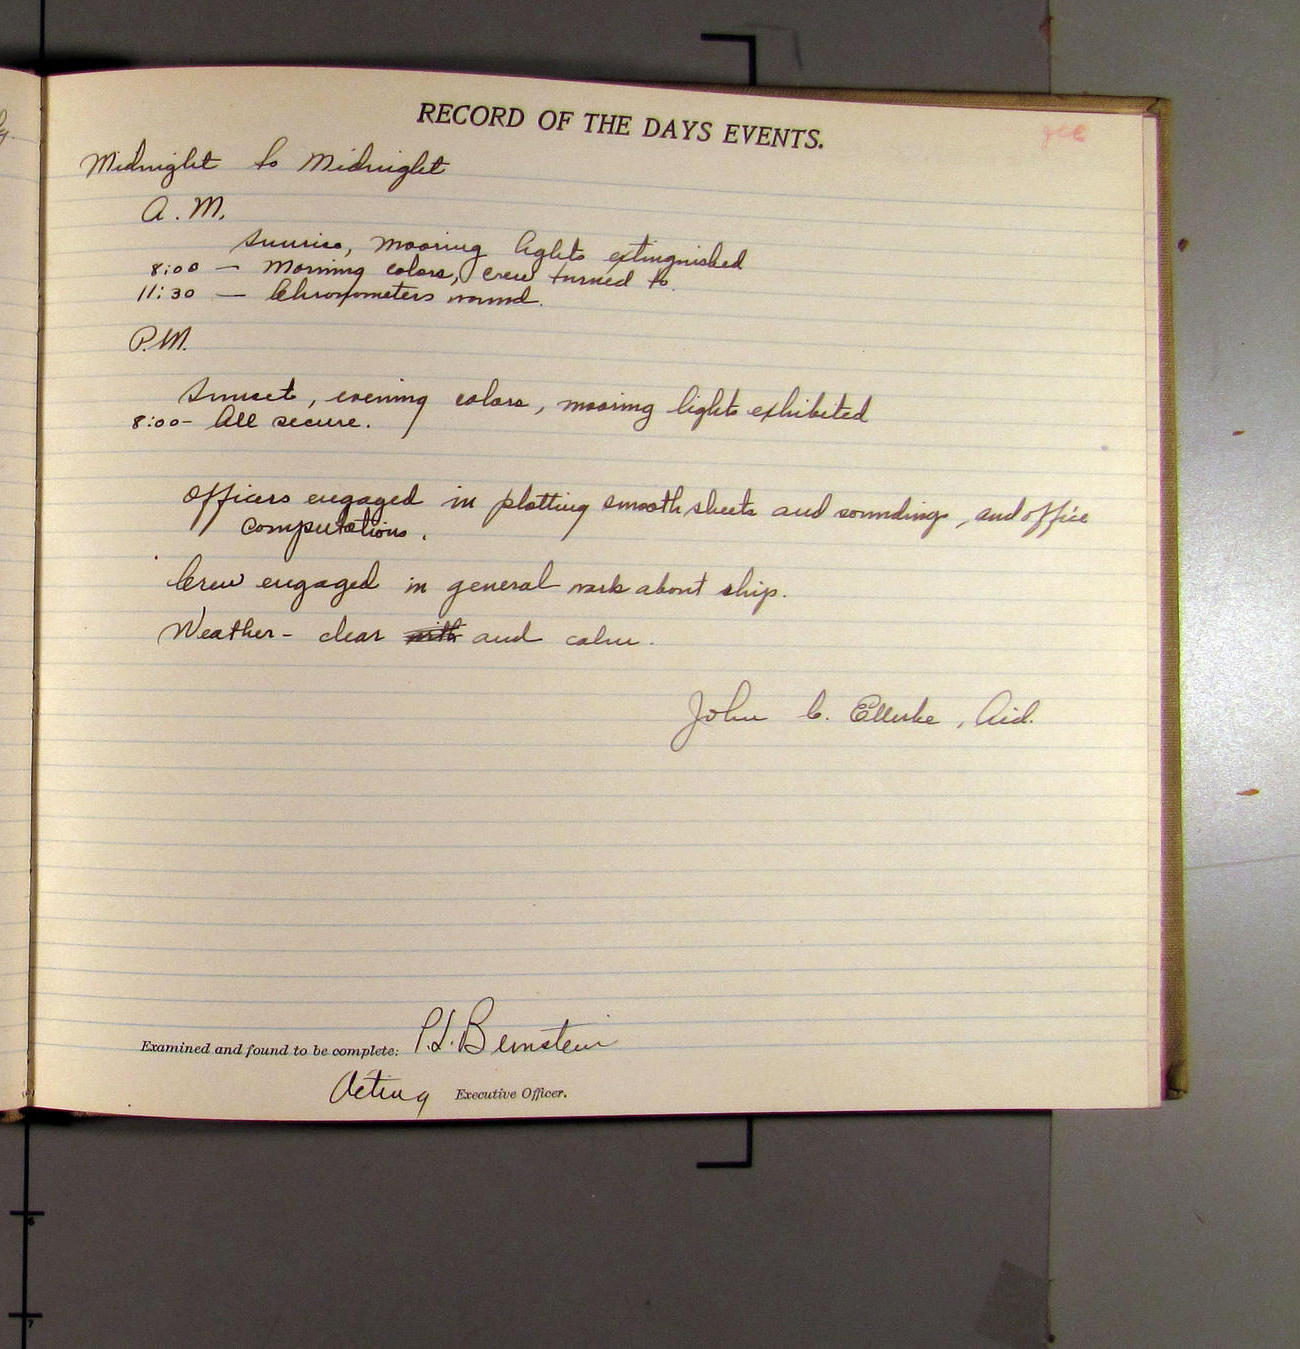 RECORD OF THE DAYS EVENTS.
Midnight to Midnight
A.M.
Sunrise, mooring lights extinguished
8:00 — Morning colors, crew turned to.
11:30 — Chronometers wound.
P.M.
Sunset, evening colors, mooring lights exhibited
8:00- All secure.
Officers engaged in plotting smooth sheets and soundings, and office
computations.
Crew engaged in general work about ship.
Weather- clear with and calm.
John C. , Aid.
Examined and found to be complete: P.L. Bernstein
Acting Executive Officer.
6
7